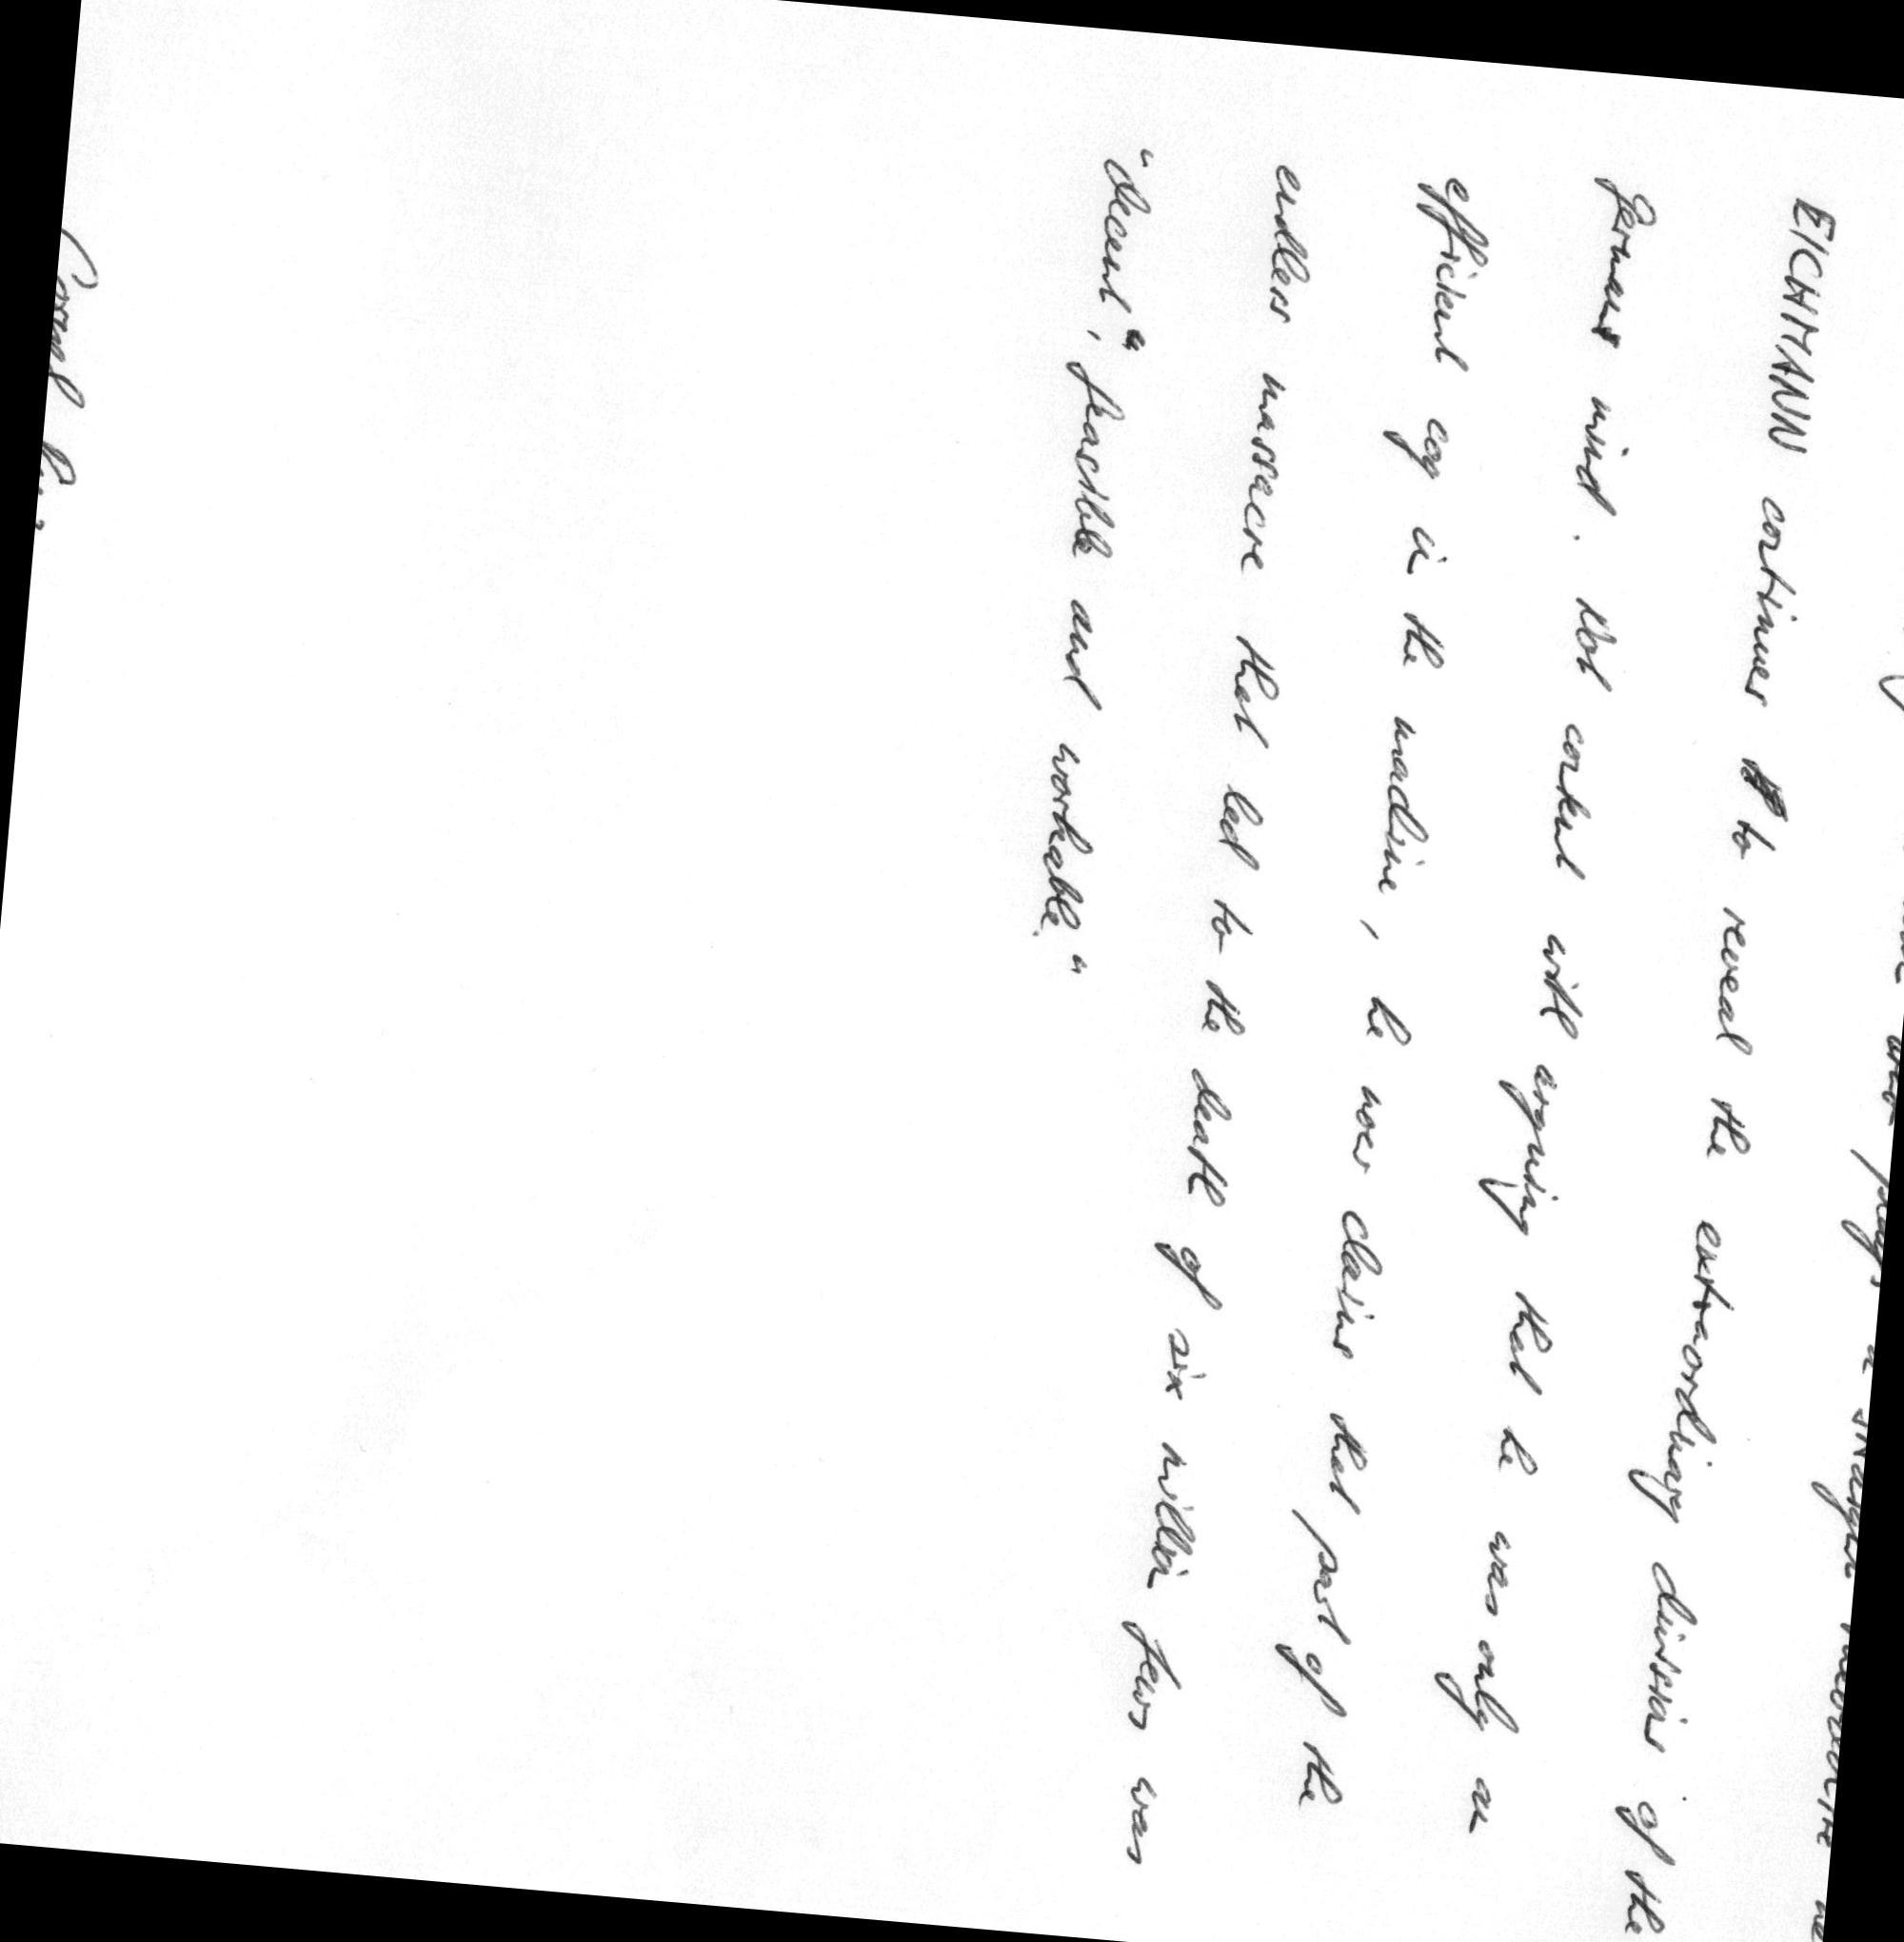 EICHMANN continues to reveal the extraordinary divisions of the
Germans mind. Not content with arguing that he was only an
efficient cog in the machine, he now claims that part of the
endless massacre that led to the death of six million Jews was
"decent", feasible and workable."